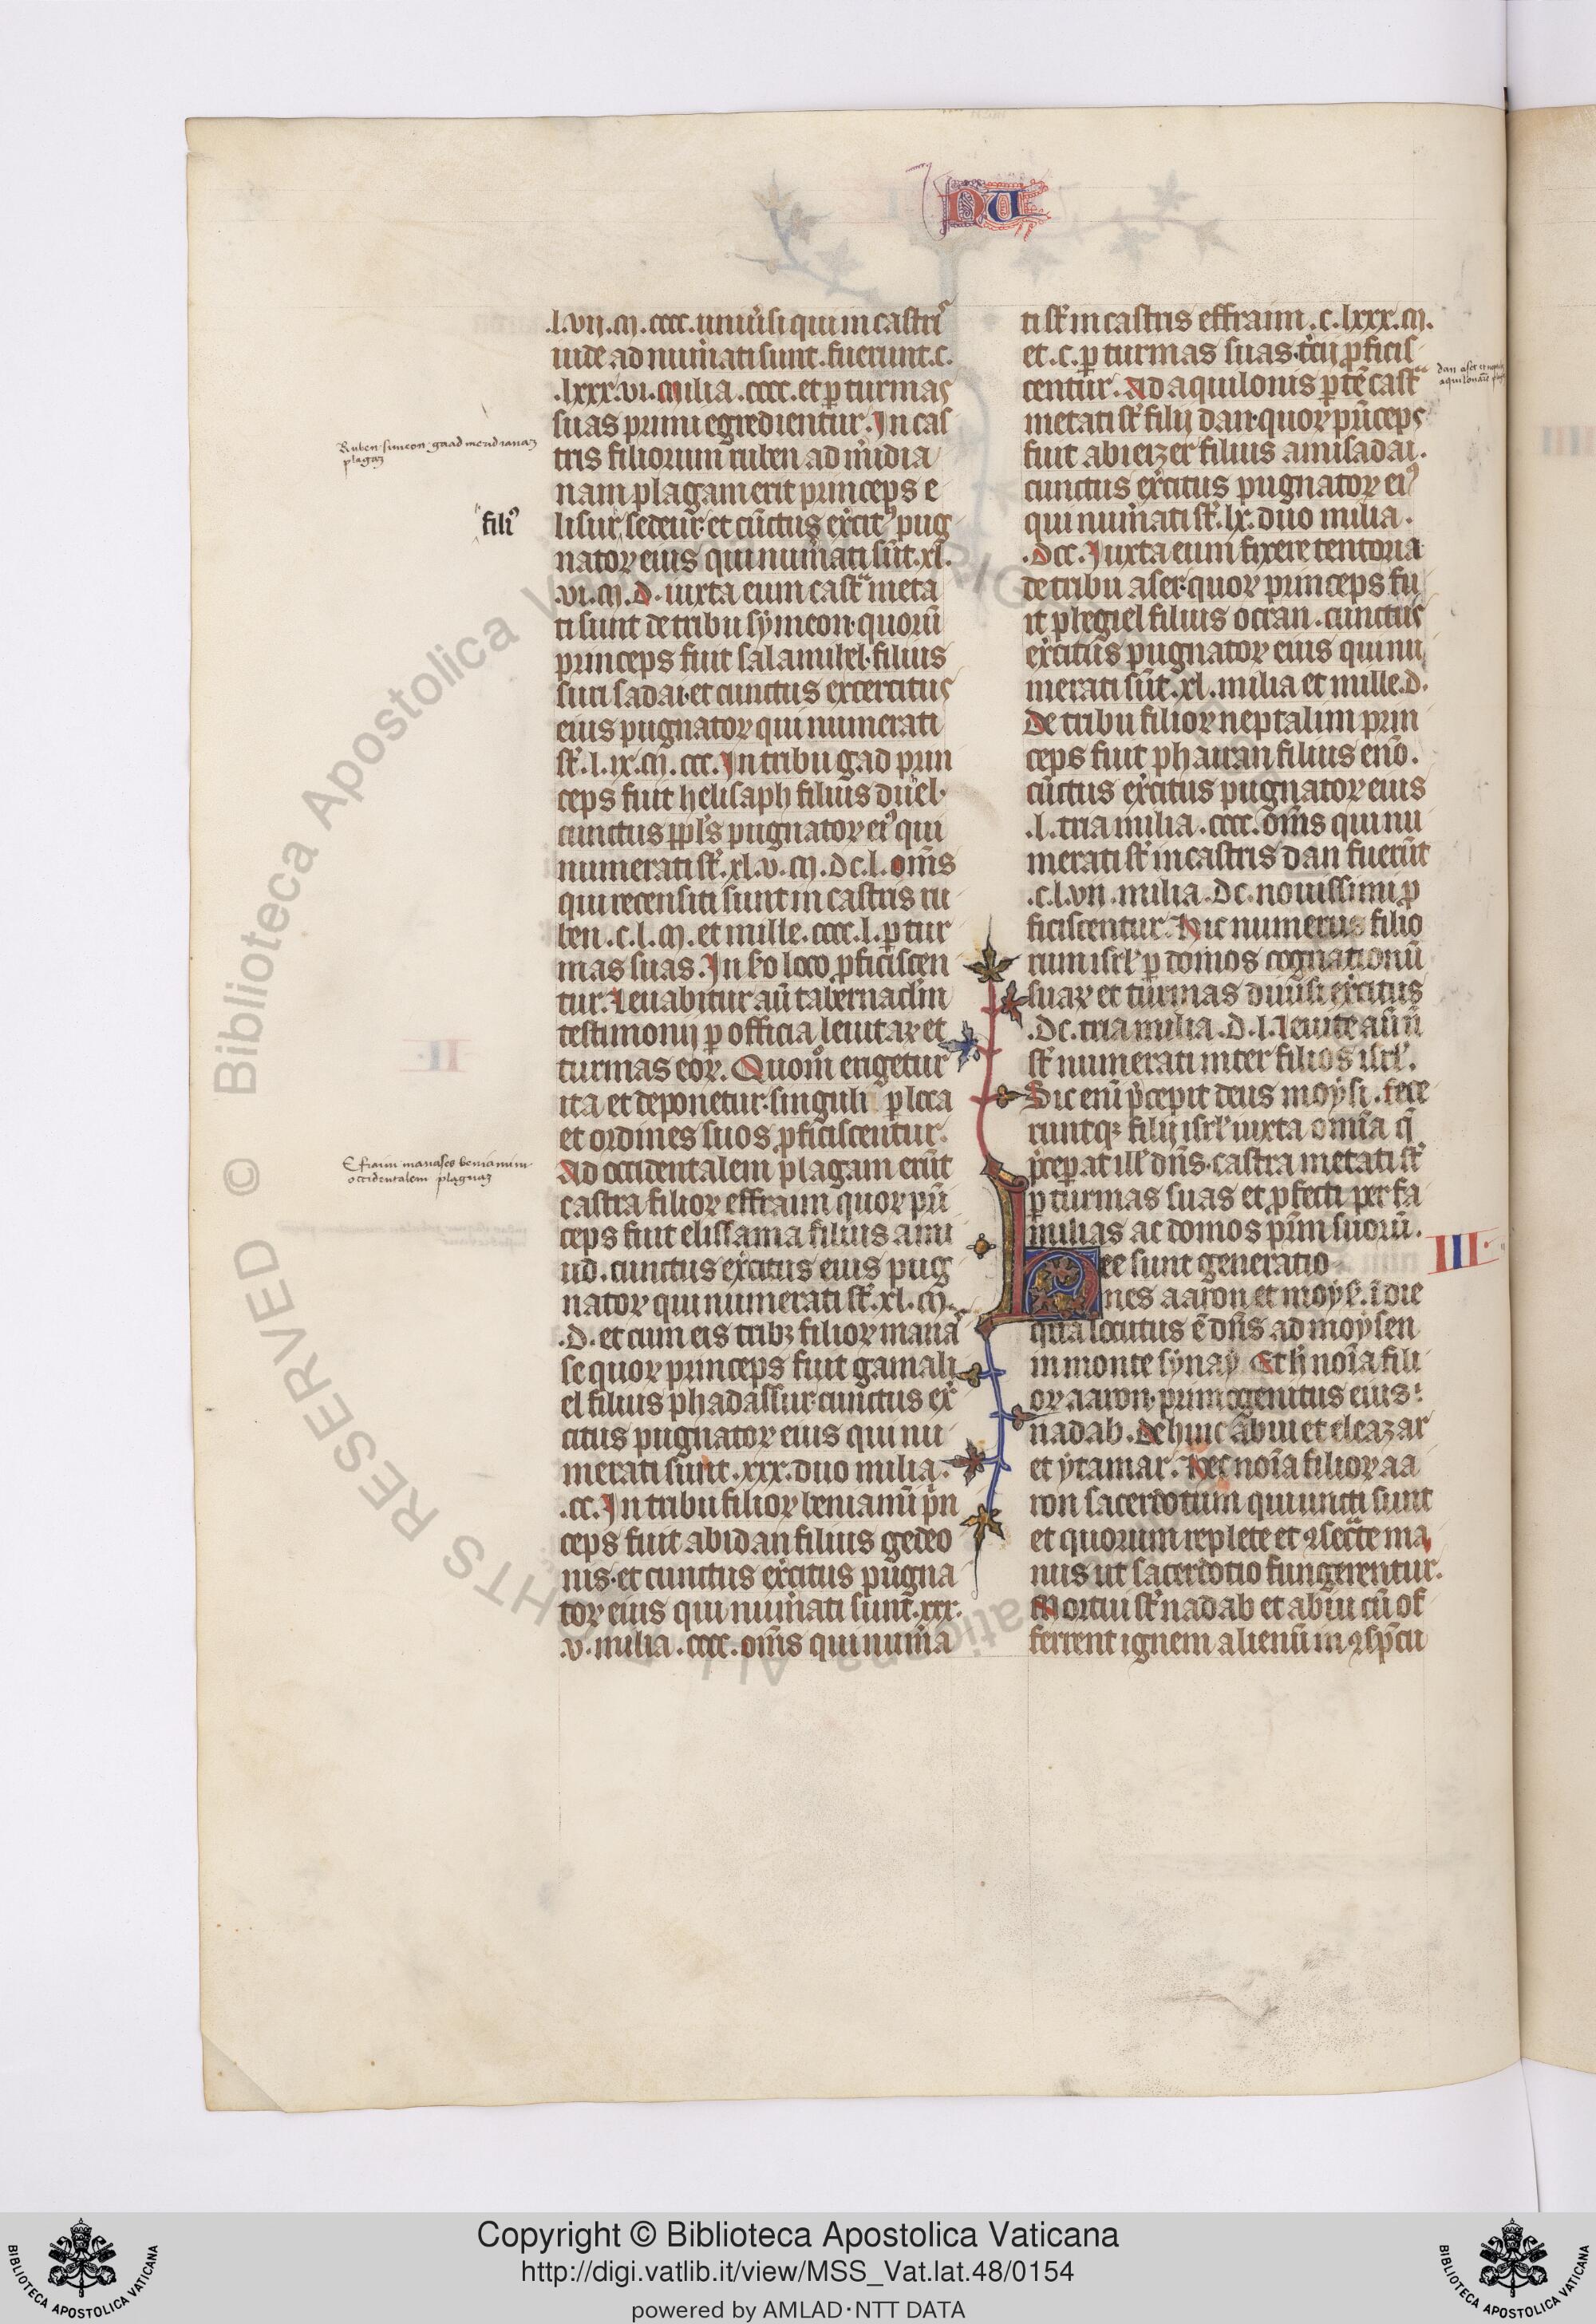 NU
.l.vii.m̅.cccc. uniu͛si qui in castris
iude ad num͛ati sunt. fuerunt .c.
.lxxx.vi. milia .cccc. et ꝑ turmas
suas primi egredientur. In cas
tris filiorum ruben ad m͛idia
nam plagam erit princeps e
lisur sedeur. et cūctus ex͛citꝰ pug
nator eius qui num͛ati sūt .xl.
.vi.m̅.d. iuxta eum castᵃ meta
ti sunt de tribu symeon. quorū
princeps fuit salamihel. filius
suri sadai. et cunctus excercitus
eius pugnator qui numerati
st̄ .l.ix.m̅.ccc. In tribu gad prin
ceps fuit helisaph filius duel.
cunctus ppl̄s pugnator eiꝰ qui
numerati st̄ .xl.v.m̅.dc.l. om̅s
qui recensiti sunt in castris ru
ben .c.l.m̅. et mille .cccc.l. ꝑ tur
mas suas. In s͛o loco ꝓficiscen
tur. Leuabitur aū tab͛nacl̄m
testimonii ꝑ officia leuitaꝝ et
turmas eoꝝ. Quom̊ erigetur
ita et deponetur. singuli ꝑ loca
et ordines suos ꝓficiscentur.
Ad occidentalem plagam erūt
castra filioꝝ effraim quoꝝ pͥn
ceps fuit elissama filius ami
ud. cunctus ex͛citus eius pug
nator qui numerati st̄ .xl.m̅.
.d. et cum eis tribꝫ filioꝝ mana
se quoꝝ princeps fuit gamali
el filius phadassur. cunctus ex͛
citus pugnator eius qui nu
merati sunt .xxx. duo milia.
.cc. In tribu filioꝝ beniamī pͥn
ceps fuit abidan filius gedeo
nis. et cunctus ex͛citus pugna
tor eius qui num͛ati sunt .xxx.
.v. milia .cccc. om̅s qui num͛a
ti st̄ in castris effraim .c.lxxx.m̅.
et .c. ꝑ turmas suas. t͛cii ꝓficis
centur. Ad aquilonis ꝑtē castᵃ
metati st̄ filii dan. quoꝝ pͥnceps
fuit abiezer filius amisadai.
cunctus ex͛citus pugnator eiꝰ
qui num͛ati st̄ .lx. duo milia.
.dcc. Iuxta eum fixere tentoria
de tribu aser. quoꝝ princeps fu
it phegiel filius ocran. cunctus
ex͛citus pugnator eius qui nu
merati sūt .xl. milia et mille .d.
De tribu filioꝝ neptalim prin
ceps fuit phairan filius enō.
cūctus ex͛citus pugnator eius
.l. tria milia .cccc. om̅s qui nu
merati st̄ in castris dan fuerūt
.c.l.vii. milia .dc. nouissimi ꝓ
ficiscentur. Hic numerus filio
rum isrl̄ ꝑ domos cognationū
suaꝝ et turmas diuisi ex͛citus
.dc. tria milia .d.l. Leuite aū n̄
st̄ numerati inter filios isrl̄.
Sic enī p͛cepit deus moysi. fece
runtqꝫ filii isrl̄ iuxta omīa q̄
p͛ceꝑat ill̄ dn̄s. castra metati st̄
ꝑ turmas suas et ꝓfecti per fa
milias ac domos pr̄m suorū.
Hee sunt generatio
nes aaron et moysi. ī die
qua locutus ē dn̄s ad moysen
in monte synay. Et h̄ noīa fili
oꝝ aaron. primogenitus eius:
nadab. Dehinc abiu et eleazar
et ytamar. Hec noīa filioꝝ aa
ron sacerdotum qui uncti sunt
et quorum replete et ꝯsecᵃte ma
nus ut sacerdotio fungerentur.
Mortui st̄ nadab et abiu cū of
ferrent ignem alienū in ꝯspc̄tu
III.
Ruben simeon gaad meridianaꝫ
plagaꝫ
filiꝰ
Efraim manases beniamim
occidentalem plagaꝫ
dan aser et
aquilonarē
© Biblioteca Apostolica Vaticana
ALL RIGHTS RESERVED
Copyright © Biblioteca Apostolica Vaticana
http://digi.vatlib.it/view/MSS_Vat.lat.48/0154
powered by AMLAD·NTT DATA
BIBLIOTECA APOSTOLICA VATICANA
BIBLIOTECA APOSTOLICA VATICANA